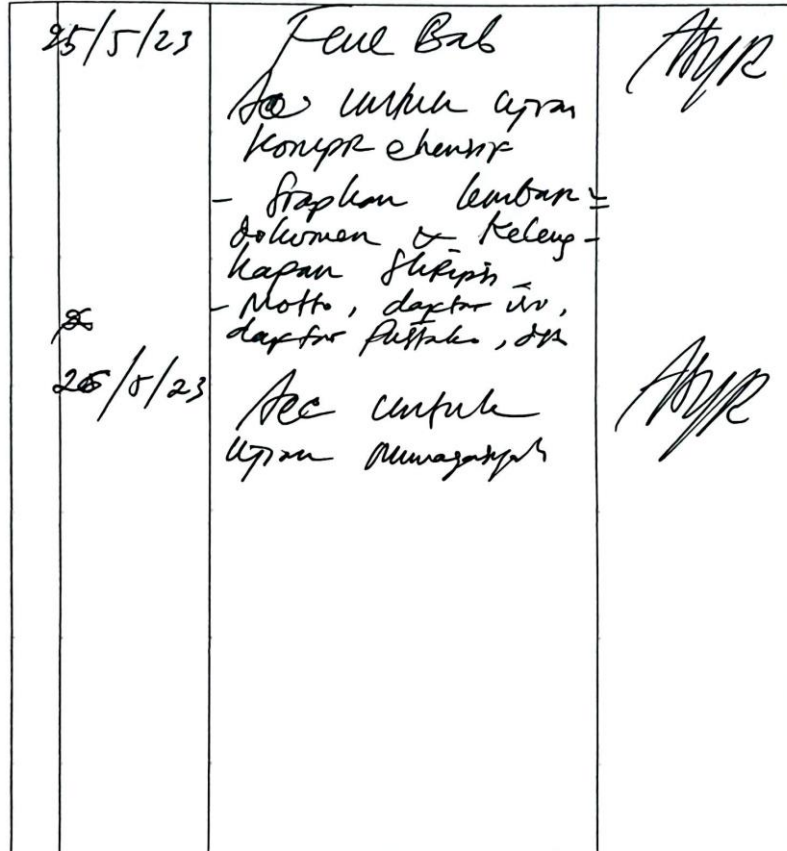 25/5/23 Full Bab
Acc untuk ujian
komprehensif
- Siapkan lembar=
dokumen & Keleng-
kapan Skripsi
- Motto, daftar isi,
daftar Pustaka, dll
26/5/23 Acc untuk
ujian munaqasyah